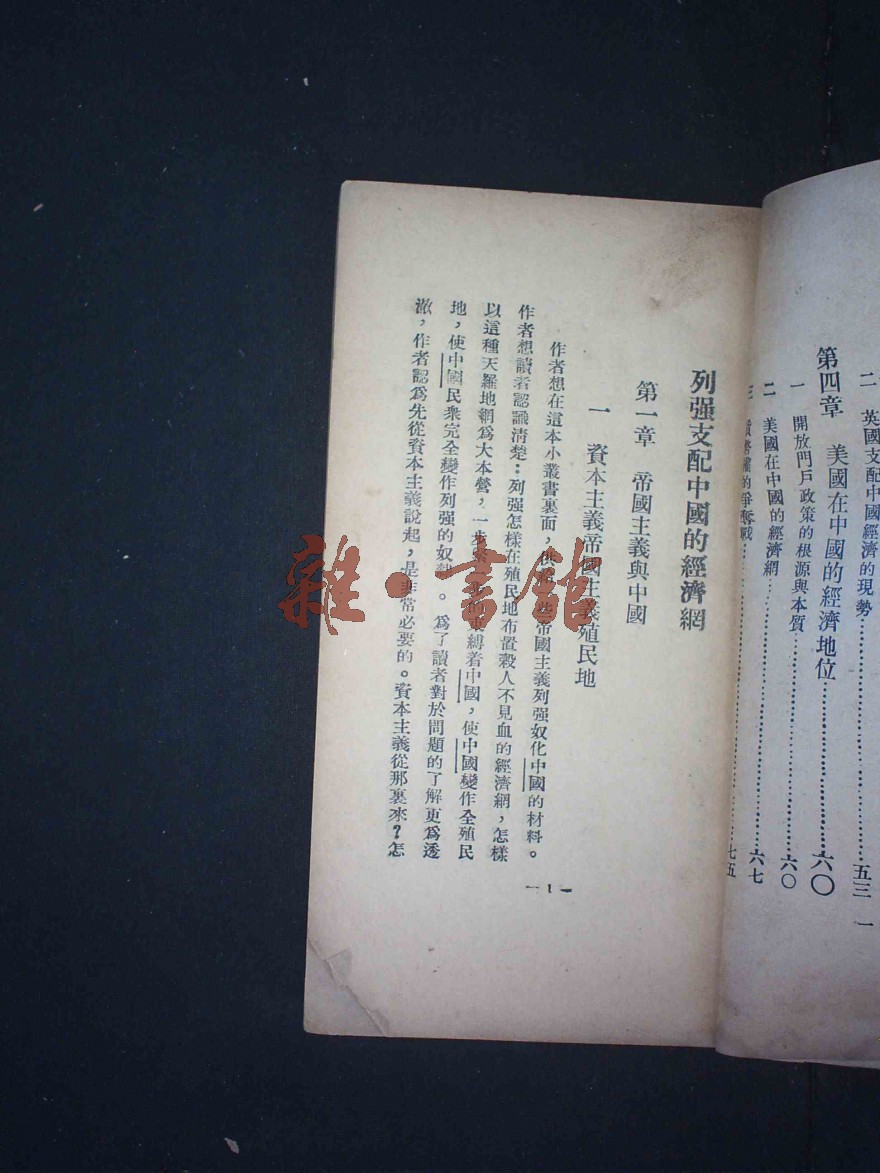 二 英國支配中國經濟的現勢……五三
第四章 美國在中國的經濟地位……六〇
一 開放門戶政策的根源與本質……六〇
二 美國在中國的經濟網……六七
的爭奪戰……七五
一
列强支配中國的經濟網
第一章 帝國主義與中國
一 資本主義帝國主義殖民地
作者想在這本小叢書裏面,供給一些帝國主義列强奴化中國的材料。
作者想讀者認識清楚:列强怎樣在殖民地布置殺人不見血的經濟網,怎樣
以這種天羅地網爲大本營,一步緊一步的束縛着中國,使中國變作全殖民
地,使中國民衆完全變作列强的奴隸。爲了讀者對於問題的了解更爲透
澈,作者認爲先從資本主義說起,是非常必要的。資本主義從那裏來?怎
—1—
雜·書館